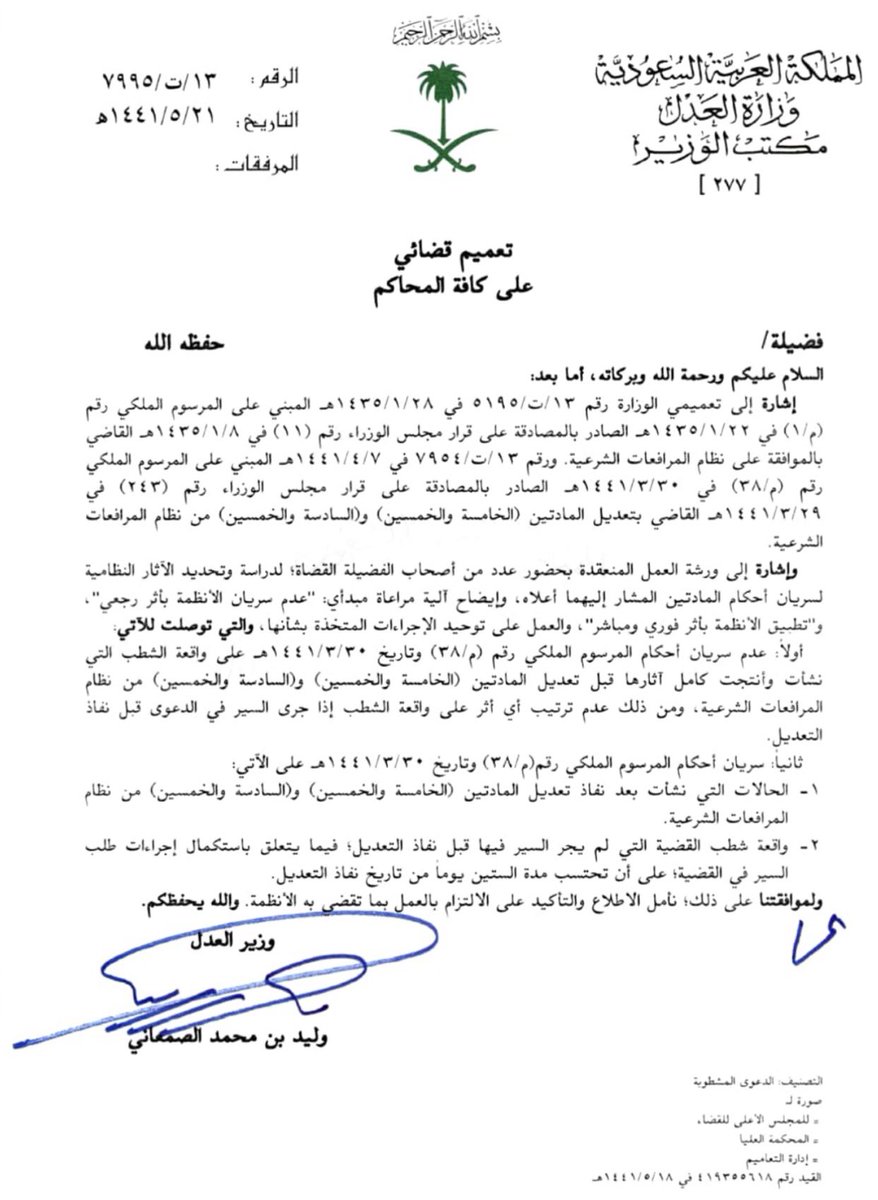 بسم الله الرحمن الرحيم
المملكة العربية السعودية
وزارة العدل
مكتب الوزير
[ ٢٧٧ ]
الرقم: ١٣/ت/٧٩٩٥
التاريخ: ١٤٤١/٥/٢١هـ
المرفقات:
تعميم قضائي
على كافة المحاكم
فضيلة/ حفظه الله
السلام عليكم ورحمة الله وبركاته، أما بعد:
إشارة إلى تعميمي الوزارة رقم ١٣/ت/٥١٩٥ في ١٤٣٥/١/٢٨هـ المبني على المرسوم الملكي رقم
(م/١) في ١٤٣٥/١/٢٢هـ الصادر بالمصادقة على قرار مجلس الوزراء رقم (١١) في ١٤٣٥/١/٨هـ القاضي
بالموافقة على نظام المرافعات الشرعية. ورقم ١٣/ت/٧٩٥٤ في ١٤٤١/٤/٧هـ المبني على المرسوم الملكي
رقم (م/٣٨) في ١٤٤١/٣/٣٠هـ الصادر بالمصادقة على قرار مجلس الوزراء رقم (٢٤٣) في
١٤٤١/٣/٢٩هـ القاضي بتعديل المادتين (الخامسة والخمسين) و(السادسة والخمسين) من نظام المرافعات
الشرعية.
وإشارة إلى ورشة العمل المنعقدة بحضور عدد من أصحاب الفضيلة القضاة؛ لدراسة وتحديد الآثار النظامية
لسريان أحكام المادتين المشار إليهما أعلاه، وإيضاح آلية مراعاة مبدأي: "عدم سريان الأنظمة بأثر رجعي"،
و"تطبيق الأنظمة بأثر فوري ومباشر"، والعمل على توحيد الإجراءات المتخذة بشأنها، والتي توصلت للآتي:
أولاً: عدم سريان أحكام المرسوم الملكي رقم (م/٣٨) وتاريخ ١٤٤١/٣/٣٠هـ على واقعة الشطب التي
نشأت وأنتجت كامل آثارها قبل تعديل المادتين (الخامسة والخمسين) و(السادسة والخمسين) من نظام
المرافعات الشرعية، ومن ذلك عدم ترتيب أي أثر على واقعة الشطب إذا جرى السير في الدعوى قبل نفاذ
التعديل.
ثانياً: سريان أحكام المرسوم الملكي رقم(م/٣٨) وتاريخ ١٤٤١/٣/٣٠هـ على الآتي:
١- الحالات التي نشأت بعد نفاذ تعديل المادتين (الخامسة والخمسين) و(السادسة والخمسين) من نظام
المرافعات الشرعية.
٢- واقعة شطب القضية التي لم يجر السير فيها قبل نفاذ التعديل؛ فيما يتعلق باستكمال إجراءات طلب
السير في القضية؛ على أن تحتسب مدة الستين يوماً من تاريخ نفاذ التعديل.
ولموافقتنا على ذلك؛ نأمل الاطلاع والتأكيد على الالتزام بالعمل بما تقضي به الأنظمة. والله يحفظكم.
وزير العدل
وليد بن محمد الصمعاني
التصنيف: الدعوى المشطوبة
صورة لـ
= للمجلس الأعلى للقضاء
= المحكمة العليا
= إدارة التعاميم
القيد رقم ٤١٩٣٥٥٦١٨ في ١٤٤١/٥/١٨هـ